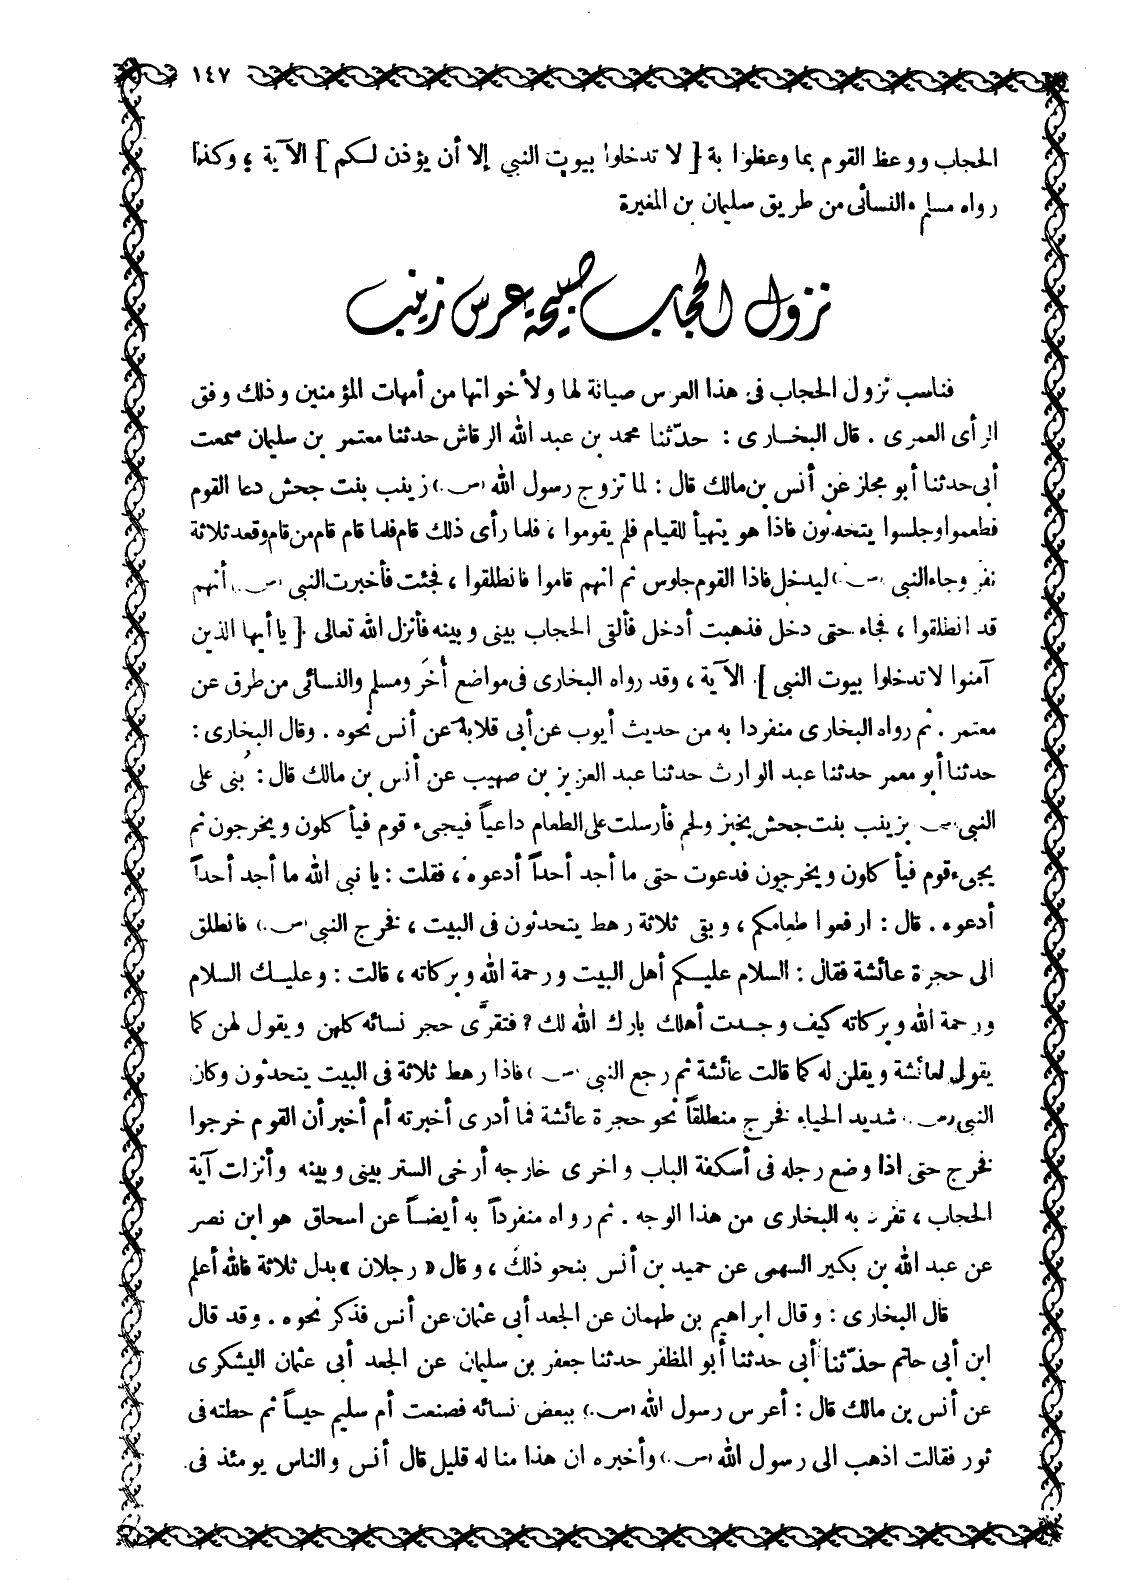 ١٤٧
الحجاب ووعظ القوم بما وعظوا بة [ لا تدخلوا بيوت النبي إلا أن يؤذن لكم ] الآية ، وكذا
رواه مسلم والنسائى من طريق سليمان بن المغيرة
نزول الحجاب صبيحة عرس زينب
فناسب نزول الحجاب فى هذا العرس صيانة لها ولأخواتها من أمهات المؤمنين وذلك وفق
الرأى العمرى . قال البخارى : حدّثنا محمد بن عبد الله الرقاش حدثنا معتمر بن سليمان سمعت
أبى حدثنا أبو مجلز عن أنس بن مالك قال : لما تزوج رسول الله (ص.) زينب بنت جحش دعا القوم
فطعموا وجلسوا يتحدثون فاذا هو يتهيأ للقيام فلم يقوموا ، فلما رأى ذلك قام فلما قام قام من قام وقعد ثلاثة
نفر وجاء النبى (ص.) ليدخل فاذا القوم جلوس ثم انهم قاموا فانطلقوا ، فجئت فأخبرت النبى (ص.) أنهم
قد انطلقوا ، فجاء حتى دخل فذهبت أدخل فألقى الحجاب بينى وبينه فأنزل الله تعالى [ يا أيها الذين
آمنوا لا تدخلوا بيوت النبى ] الآية ، وقد رواه البخارى فى مواضع أُخَر ومسلم والنسائى من طرق عن
معتمر . ثم رواه البخارى منفردا به من حديث أيوب عن أبى قلابة عن أنس نحوه . وقال البخارى :
حدثنا أبو معمر حدثنا عبد الوارث حدثنا عبد العزيز بن صهيب عن أنس بن مالك قال : بُنى على
النبى (ص) بزينب بنت جحش بخبز ولحم فأرسلت على الطعام داعياً فيجىء قوم فيأكلون ويخرجون ثم
يجىء قوم فيأكلون ويخرجون فدعوت حتى ما أجد أحداً أدعوه ، فقلت : يا نبى الله ما أجد أحداً
أدعوه . قال : ارفعوا طعامكم ، وبقى ثلاثة رهط يتحدثون فى البيت ، فخرج النبى (ص.) فانطلق
الى حجرة عائشة فقال : السلام عليكم أهل البيت ورحمة الله وبركاته ، قالت : وعليك السلام
ورحمة الله وبركاته كيف وجدت أهلك بارك الله لك ? فتقرَّى حجر نسائه كلهن ويقول لهن كما
يقول لعائشة ويقلن له كما قالت عائشة ثم رجع النبى (ص) فاذا رهط ثلاثة فى البيت يتحدثون وكان
النبى (ص.) شديد الحياء فخرج منطلقاً نحو حجرة عائشة فما أدرى أخبرته أم أخبر أن القوم خرجوا
فخرج حتى اذا وضع رجله فى أسكفة الباب واخرى خارجه أرخى الستر بينى وبينه وأنزلت آية
الحجاب ، تفرد به البخارى من هذا الوجه . ثم رواه منفرداً به أيضاً عن اسحاق هو ابن نصر
عن عبد الله بن بكير السهمى عن حميد بن أنس بنحو ذلك ، وقال « رجلان » بدل ثلاثة فالله أعلم
قال البخارى : وقال ابراهيم بن طهمان عن الجعد أبى عثمان عن أنس فذكر نحوه . وقد قال
ابن أبى حاتم حدّثنا أبى حدثنا أبو المظفر حدثنا جعفر بن سليمان عن الجعد أبى عثمان اليشكرى
عن أنس بن مالك قال : أعرس رسول الله (ص.) ببعض نسائه فصنعت أم سليم حيساً ثم حطته فى
ثور فقالت اذهب الى رسول الله (ص.) وأخبره ان هذا منا له قليل قال أنس والناس يومئذ فى